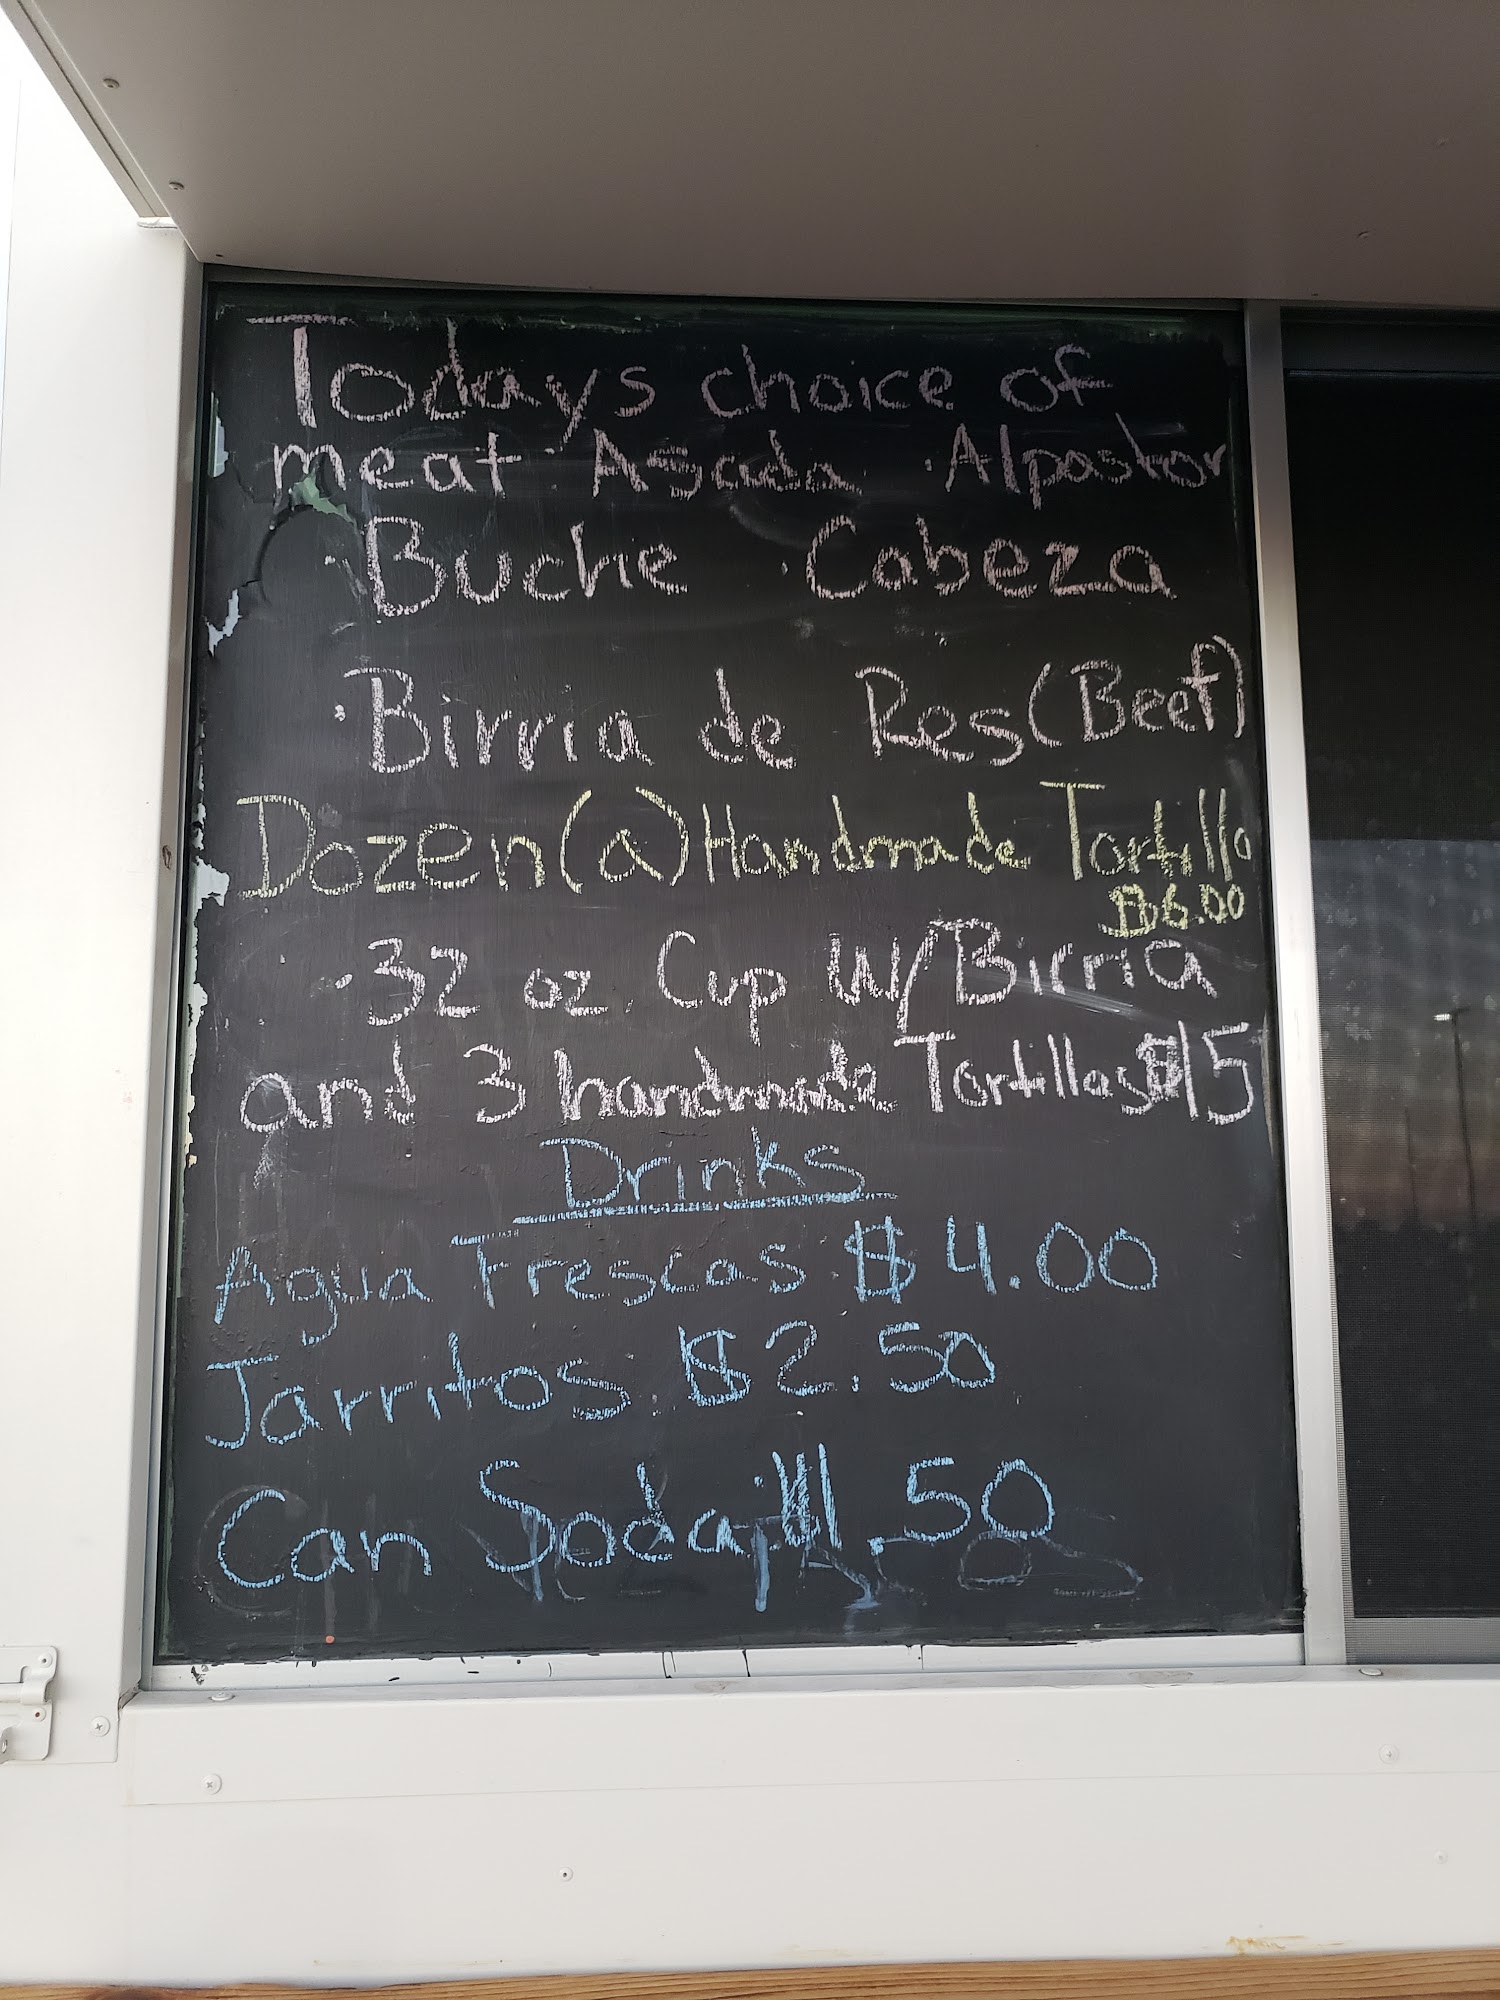 Todays choice of
meat · Asada · Alpastor
· Buche · Cabeza
· Birria de Res (Beef)
Dozen (a) Handmade Tortilla
$6.00
- 32 oz. Cup W/ Birria
and 3 handmade Tortillas $15
Drinks
Agua Frescas $4.00
Jarritos $2.50
Can Soda $1.50